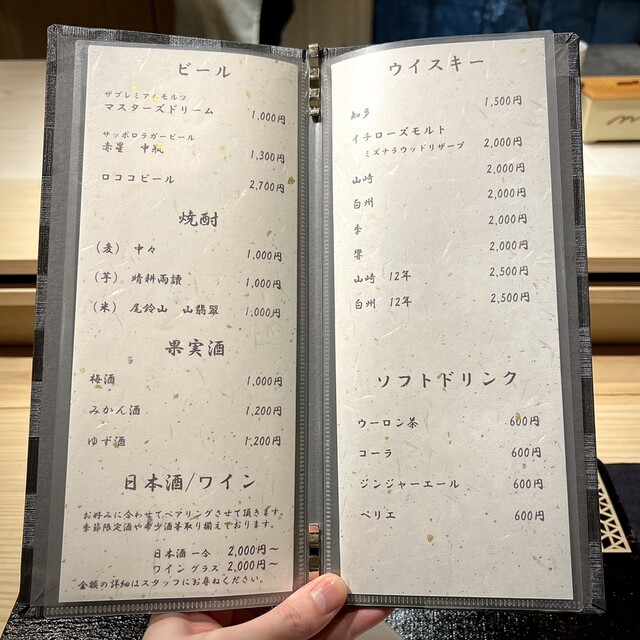 ビール
ザプレミアムモルツ
マスターズドリーム 1,000円
サッポロラガービール
赤星 中瓶 1,300円
ロココビール 2,700円
焼酎
(麦) 中々 1,000円
(芋) 晴耕雨讀 1,000円
(米) 尾鈴山 山翡翠 1,000円
果実酒
梅酒 1,000円
みかん酒 1,200円
ゆず酒 1,200円
日本酒/ワイン
お好みに合わせてペアリングさせて頂きます
季節限定酒や希少酒等取り揃えております。
日本酒 一合 2,000円~
ワイン グラス 2,000円~
金額の詳細はスタッフにお尋ねください。
ウイスキー
知多 1,500円
イチローズモルト
ミズナラウッドリザーブ 2,000円
山崎 2,000円
白州 2,000円
季 2,000円
響 2,000円
山崎 12年 2,500円
白州 12年 2,500円
ソフトドリンク
ウーロン茶 600円
コーラ 600円
ジンジャーエール 600円
ペリエ 600円